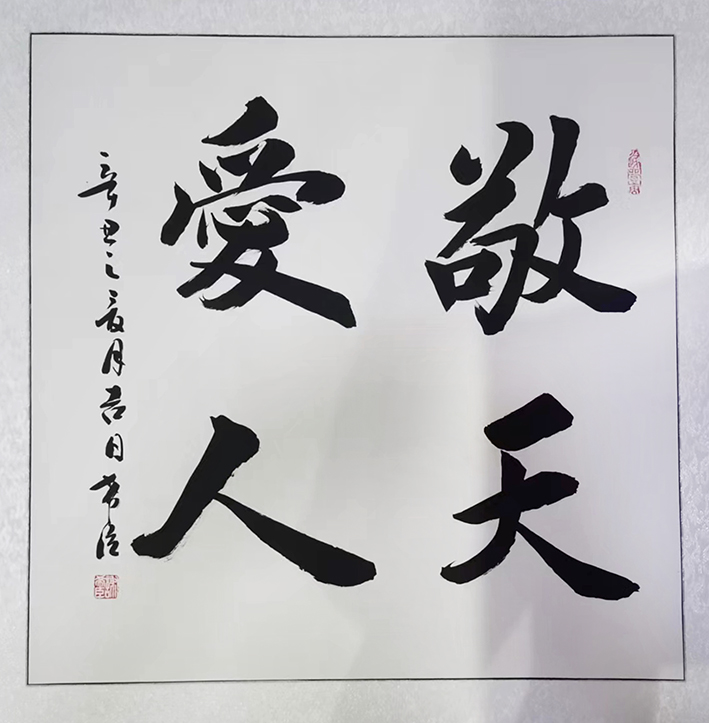 敬天
愛人
辛丑之夏月吉日